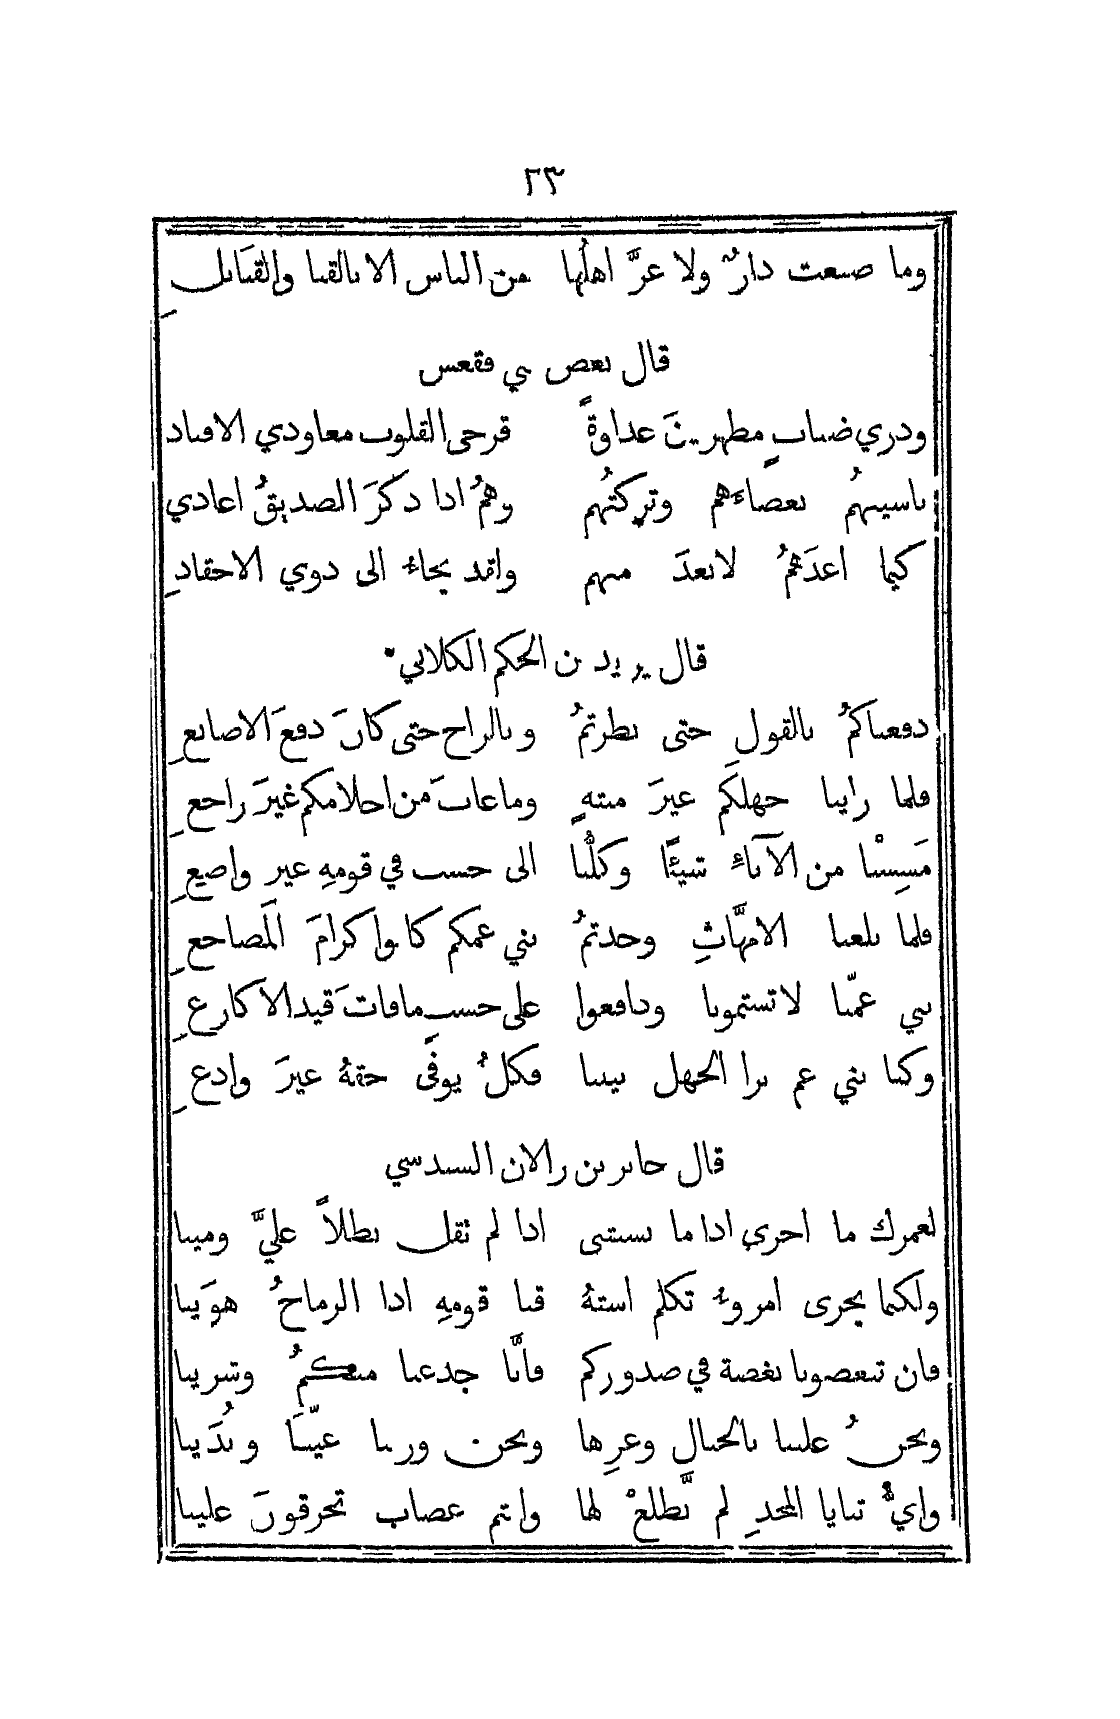 ٢٣
وما ضيعت دارٌ ولا عزَّ اهلُها من الناس الا بالقنا والقنابلِ
قال بعض بني فقعس
وذوي ضبابٍ مظهرينَ عداوةً قرحى القلوب معاودي الافناد
ناسيتهمُ بغضاءَهم وتركتُهم وهمُ اذا ذكرَ الصديقُ اعادي
كيما اعدَهمُ لابعدَ منهم ولقد يجاءُ الى ذوي الاحقادِ
قال يزيد بن الحكم الكلابي
دفعناكمُ بالقولِ حتى بطرتمُ وبالراح حتى كانَ دفعَ الاصابعِ
فلما راينا جهلَكم غيرَ منتهٍ وما غابَ من احلامكم غيرَ راجعِ
مَسِسْنا من الآباءِ شيئًا وكلُّنا الى حسب في قومهِ غير واضيعِ
فلما بلغنا الامهَّاثِ وجدتمُ بني عمكم كانوا كرامَ المَضاجعِ
بني عمّنا لا تشتمونا ودافعوا على حسبٍ ما فاتَ قيد الاكارعِ
وكنا بني عم نزا الجهل بيننا فكلٌ يوفَّى حقهُ غيرَ وادعِ
قال جابر بن رالان السدسي
لعمرك ما اخزي اذا ما نسبتني اذا لم تقل بطلاً عليَّ ومينا
ولكنما يجزى امروءٌ تكلم استهُ قنا قومهِ اذا الرماحُ هوَينا
فان تبغضونا بغضة في صدوركم فانَّا جدعنا منكمُ وشرينا
ونحنُ غلبنا بالجبال وعزِها ونحن ورثنا غيّثاَ وبُدَينا
وايُّ ثنايا المجدِ لم نَّطلعْ لها وانتم غضاب تحرقونَ علينا